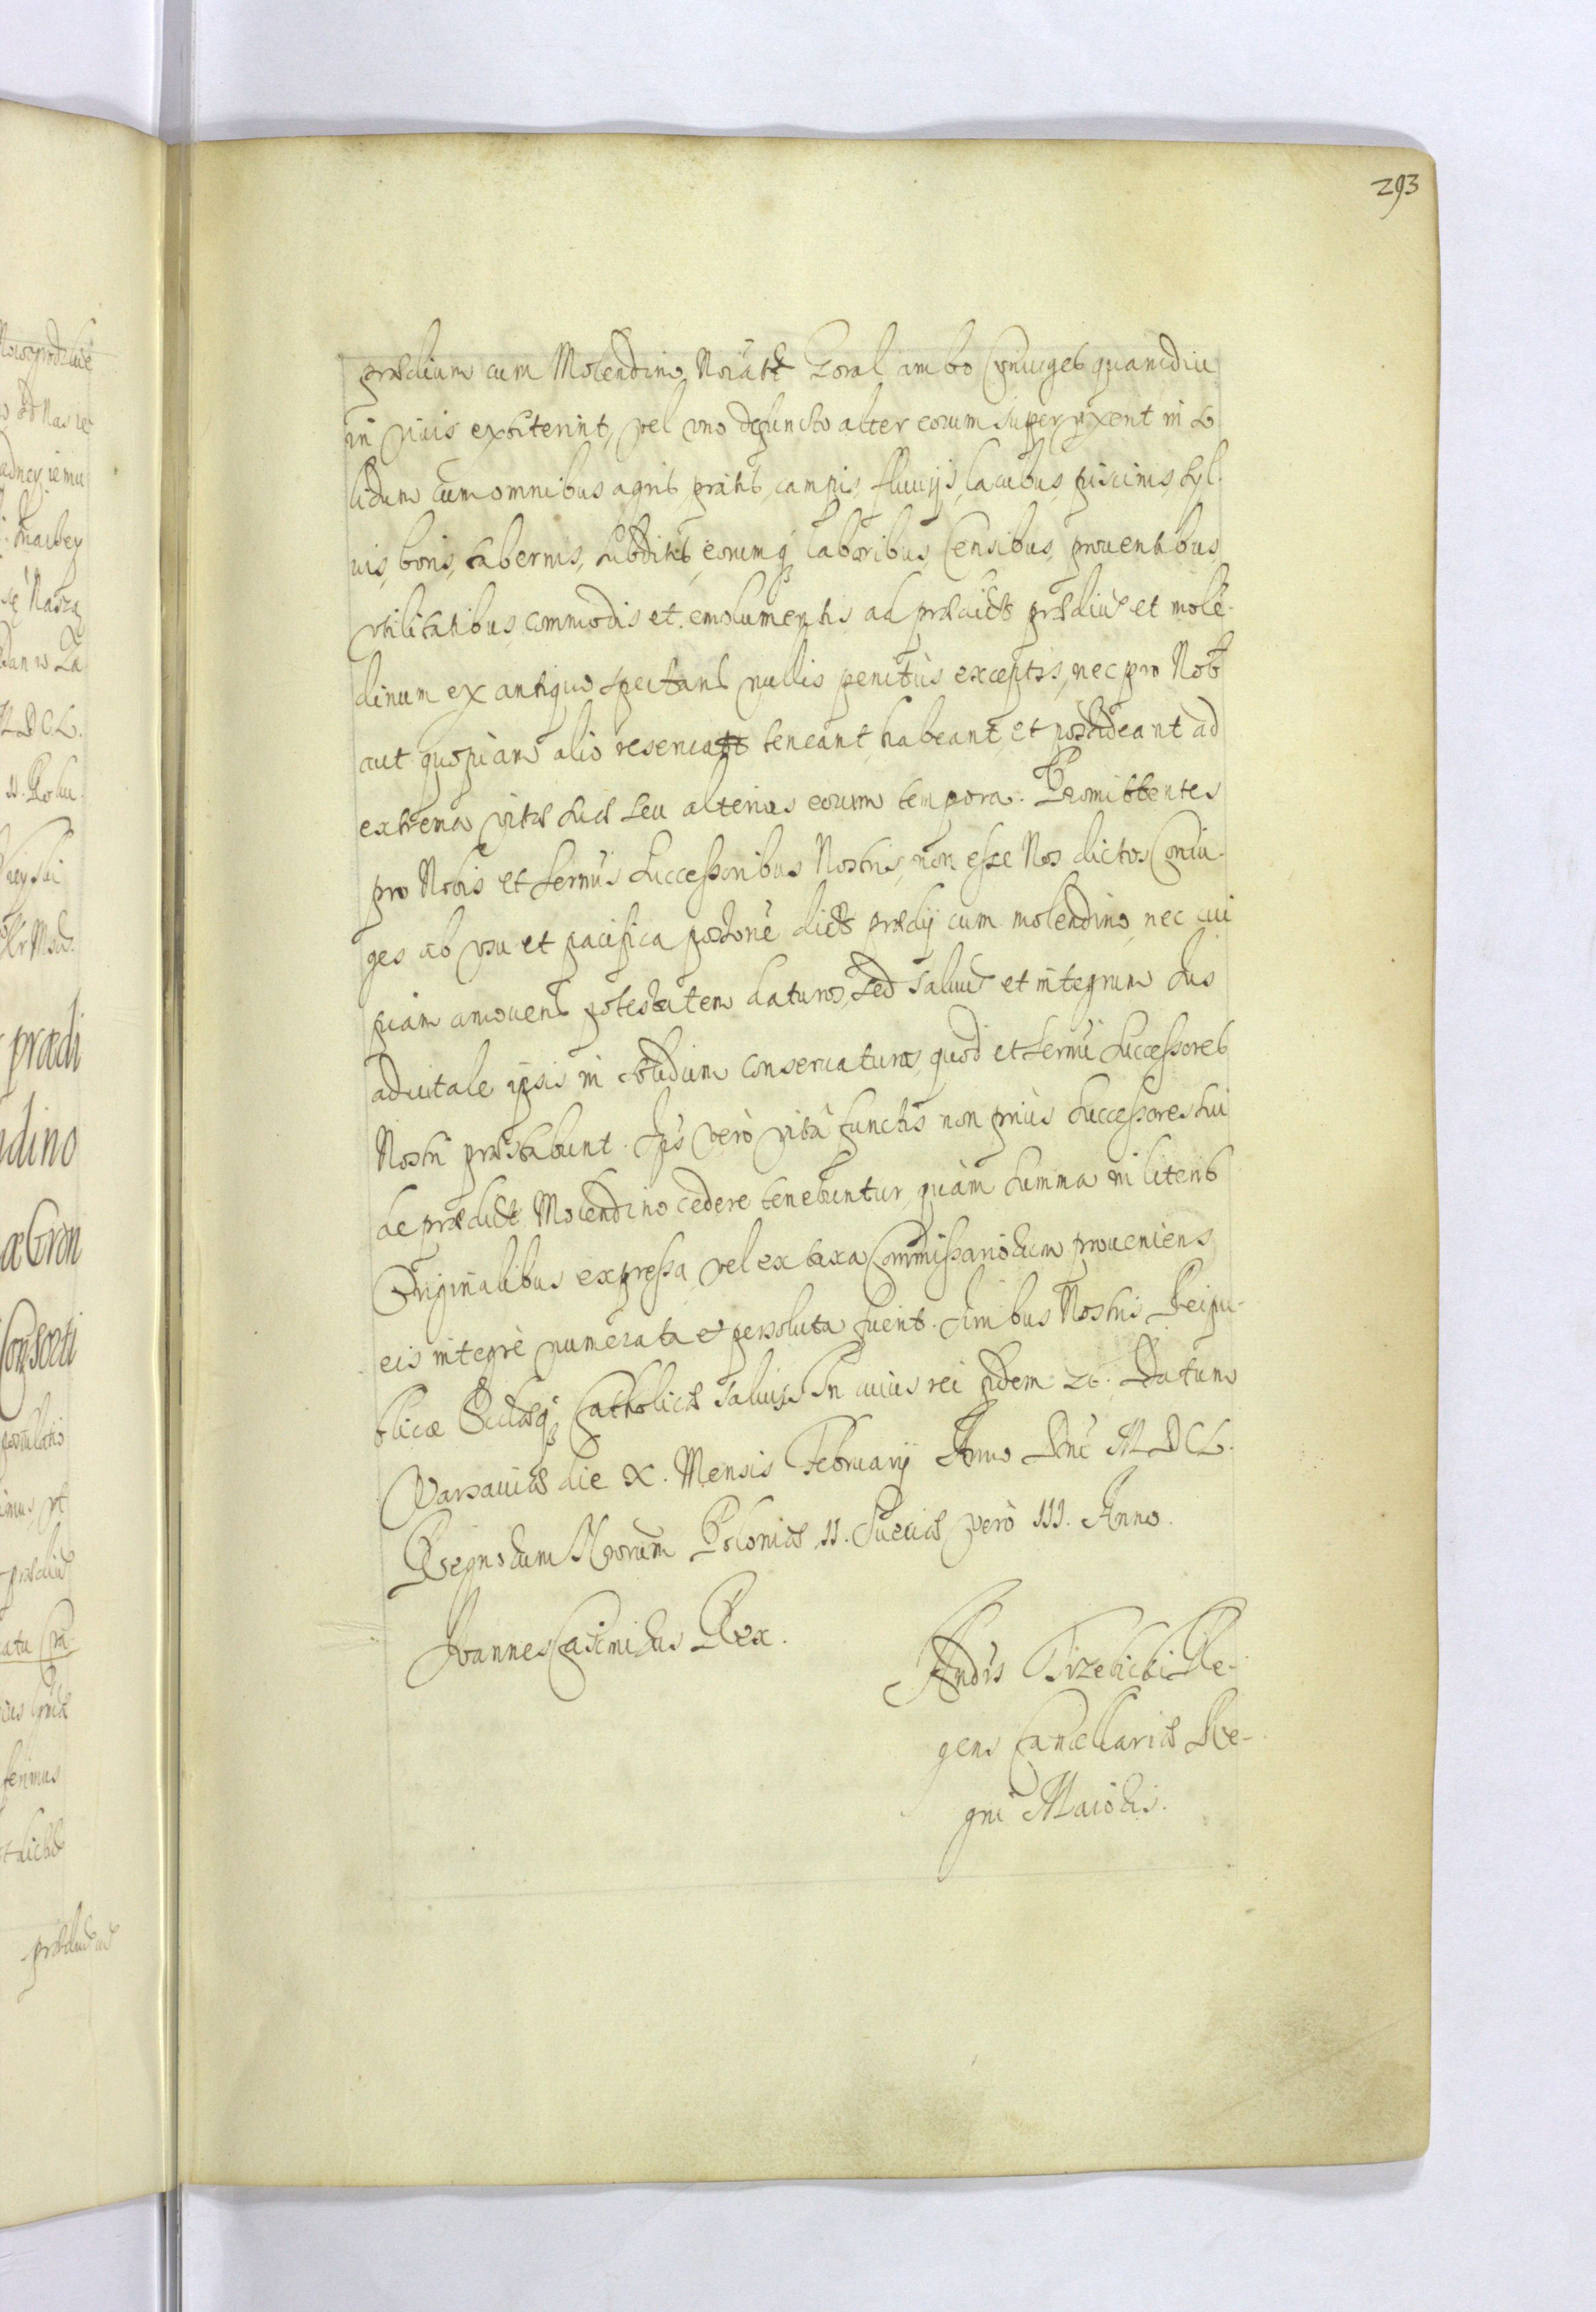 293
prædium cum Molendino Noiatt Goral ambo Coniuges quamdiu
in viuis extiterint, vel vno defuncto alter eorum superuixerit in So
lidum cum omnibus agris, pratis, campis, fluuijs, lacubus, piscinis, Syl-
uis, boris, tabernis, Subditis, eorumq laboribus, Censibus, prouentibus,
vtilitatibus, commodis et emolumentis ad prædict prædiu et mole-
dinum ex antiquo spectans nullis penitùs exceptis, nec pro Nob
aut quopiam alio reseruatt teneant, habeant, et possideant ad
extrema vitæ Suæ Seu alterius eorum tempora. Promittentes
pro Nobis et Sermis Successoribus Nostris, non esse Nos dictos Coniu-
ges ab vsu et pacifica possone dict prædij cum molendino, nec cui
piam amouens potestatem daturos, Sed saluu et integrum Jus
aduitale ipsis in Solidum conseruaturos, quod et Sermi Successores
Nostri præstabunt. Ijs verò vita functis non priùs Successores Sui
de prædict Molendino cedere tenebuntur, quàm Summa in literis
Originalibus expressa, vel ex taxa Commissariorum proueniens
eis integrè numerata et persoluta fuerit. Juribus Nostris Reipu-
blicæ Ecclæq Catholicæ saluis. In cuius rei fidem &c. Datum
Varsauiæ die X. Mensis February Anno Dni M D C L.
Regnorum Nrorum Poloniæ II. Sueciæ verò III. Anno.
Joannes Casimirus Rex.
Andrs Trzebicki Re-
gens Cancellariæ Re-
gni Maioris.